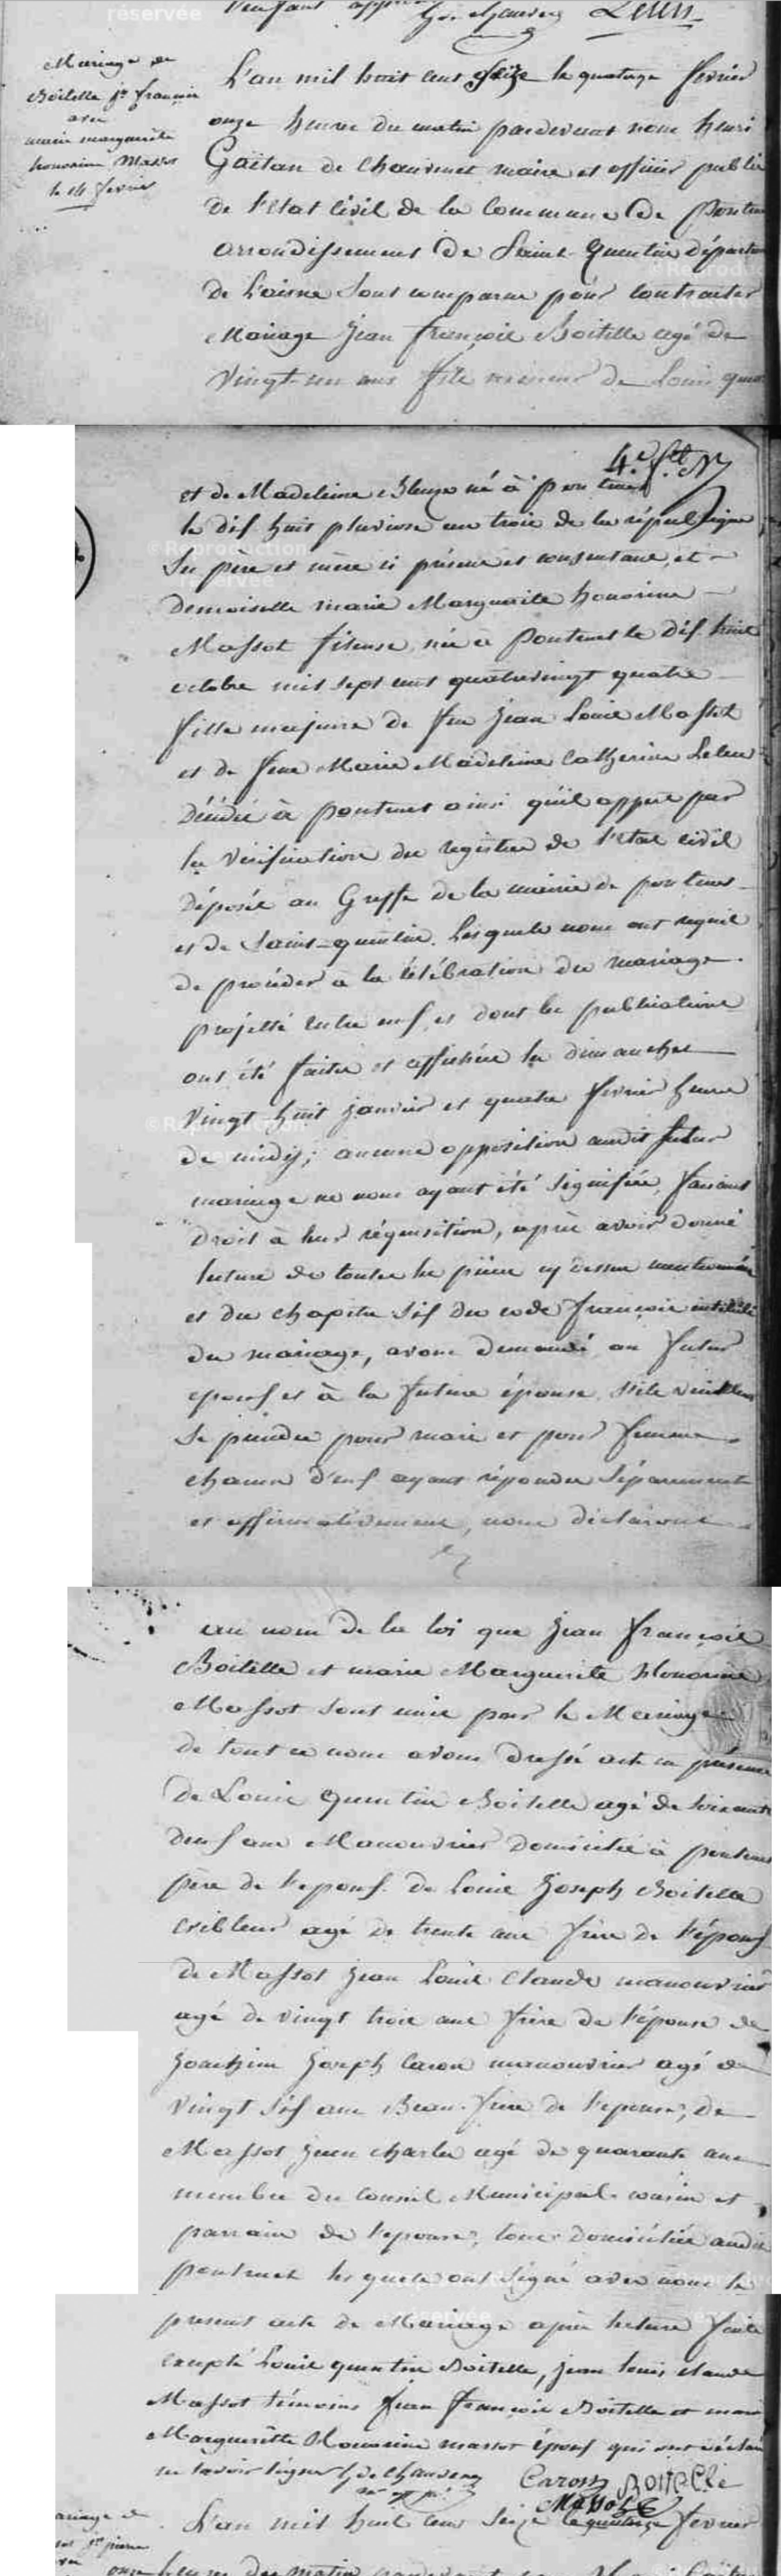 Mariage de
Boitelle jn françois
avec
marie marguerite
honorine Massot
le 14 fevrier
L'an mil huit cent seize le quatorze fevrier
onze heures du matin pardevant nous henri
Gaëtan de Chauvenet maire et officier public
De l'etat Civil de la Commune de Pontru
arrondissement de Saint-Quentin départem
De L'aisne Sont comparus pour contracter
Mariage Jean françois Boitelle agé de
Vingt-un ans fils mineur de Louis quen
et de Madeleine Bleuze né à pontruet
le dix huit pluviose an trois de la république
Ses père et mère ci présents et consentans, et
Demoiselle marie Marguerite honorine
Massot fileuse, née a Pontruet le dix huit
octobre mil sept cent quatrevingt quatre
fille majeure de feu Jean Louis Massot
et de feue Marie Madeleine Catherine Leleu
Décédés à pontruet ainsi qu'il appert par
la vérification des registres de l'état civil
Déposés au Greffe de la mairie de pontruet
et de Saint-quentin. Lesquels nous ont requis
de procéder à la célébration du mariage
projetté entre eux, et dont les publications
ont été faites et affichées les dimanches
Vingt huit janvier et quatre fevrier heure
de midy; aucune opposition audit futur
mariage ne nous ayant été signifiée, faisant
Droit à leur réquisition, après avoir donné
lecture de toutes les pièces cy dessus mentionnées
et du chapitre six du code françois intitulé
du mariage, avons demandé au futur
epoux et à la future épouse s'ils veullent
Se prendre pour mari et pour femme
chacun d'eux ayant répondu Séparément
et affirmativement, nous déclarons
au nom de la loi que Jean françois
Boitelle et marie Marguerite Honorine
Massot sont unis par le Mariage
de tout ce nous avons Dressé acte en présence
De Louis Quentin Boitelle agé de soixante
deux ans Manouvrier Domicilié à pontruet
père de l'epoux. de Louis Joseph Boitelle
Cribleur agé de trente ans frère de l'époux
de Massot Jean Louis Claude manouvrier
agé de vingt trois ans frère de l'épouse de
Joachim Joseph Caron manouvrier agé de
Vingt Six ans Beau-frère de l'epouse, de
Massot Jean charles agé de quarante ans
membre du Conseil Municipal cousin et
parrain de l'epouse, tous domiciliés audit
pontruet lesquels ont Signé avec nous le
present acte de Mariage après lecture faite
excepté Louis quentin Boitelle, jean louis claude
Massot témoins Jean françois Boitelle et marie
Marguerite Honorine massot époux qui ont déclaré
ne savoir signer G. de Chauvenet
Caron Boitelle
Massot
L'an mil huit cent Seize le quatorze fevrier
onze heures du matin